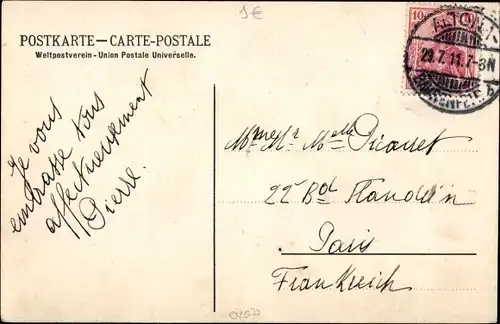 1€
POSTKARTE — CARTE-POSTALE
Weltpostverein - Union Postale Universelle.
Je vous
embrasse tous
affectueusement
Pierre.
10
ALTONA
29.7.11.7-8N
b
Mme Mr Melle Picaret
22 Bd Flandrin
Paris
Frankreich